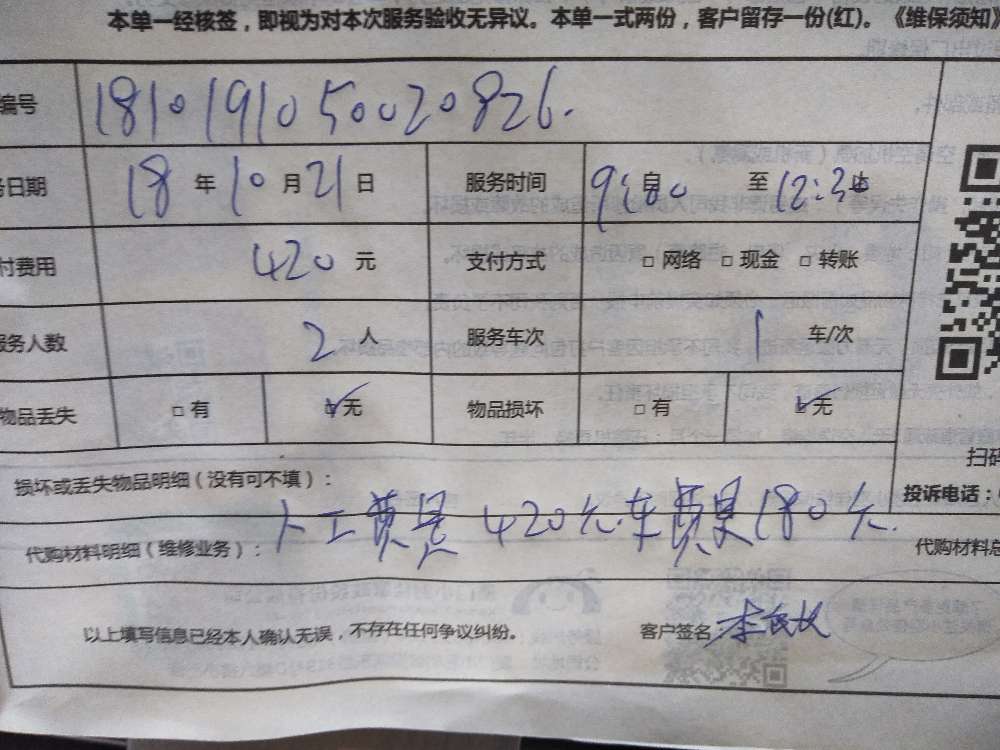 本单一经核签，即视为对本次服务验收无异议。本单一式两份，客户留存一份(红)。《维保须知》
编号 1810191050020826.
务日期 18 年 10 月 21 日 服务时间 9:00 自 至 12:30 止
付费用 420 元 支付方式 □ 网络 □ 现金 □ 转账
服务人数 2 人 服务车次 1 车/次
物品丢失 □ 有 ☑ 无 物品损坏 □ 有 ☑ 无
扫码
损坏或丢失物品明细（没有可不填）： 投诉电话：
人工费是420元车费是180元.
代购材料明细（维修业务）： 代购材料总
以上填写信息已经本人确认无误，不存在任何争议纠纷。 客户签名 李